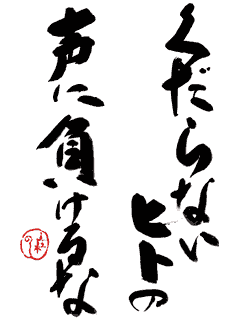 くだらない
ヒトの
声に
負けるな